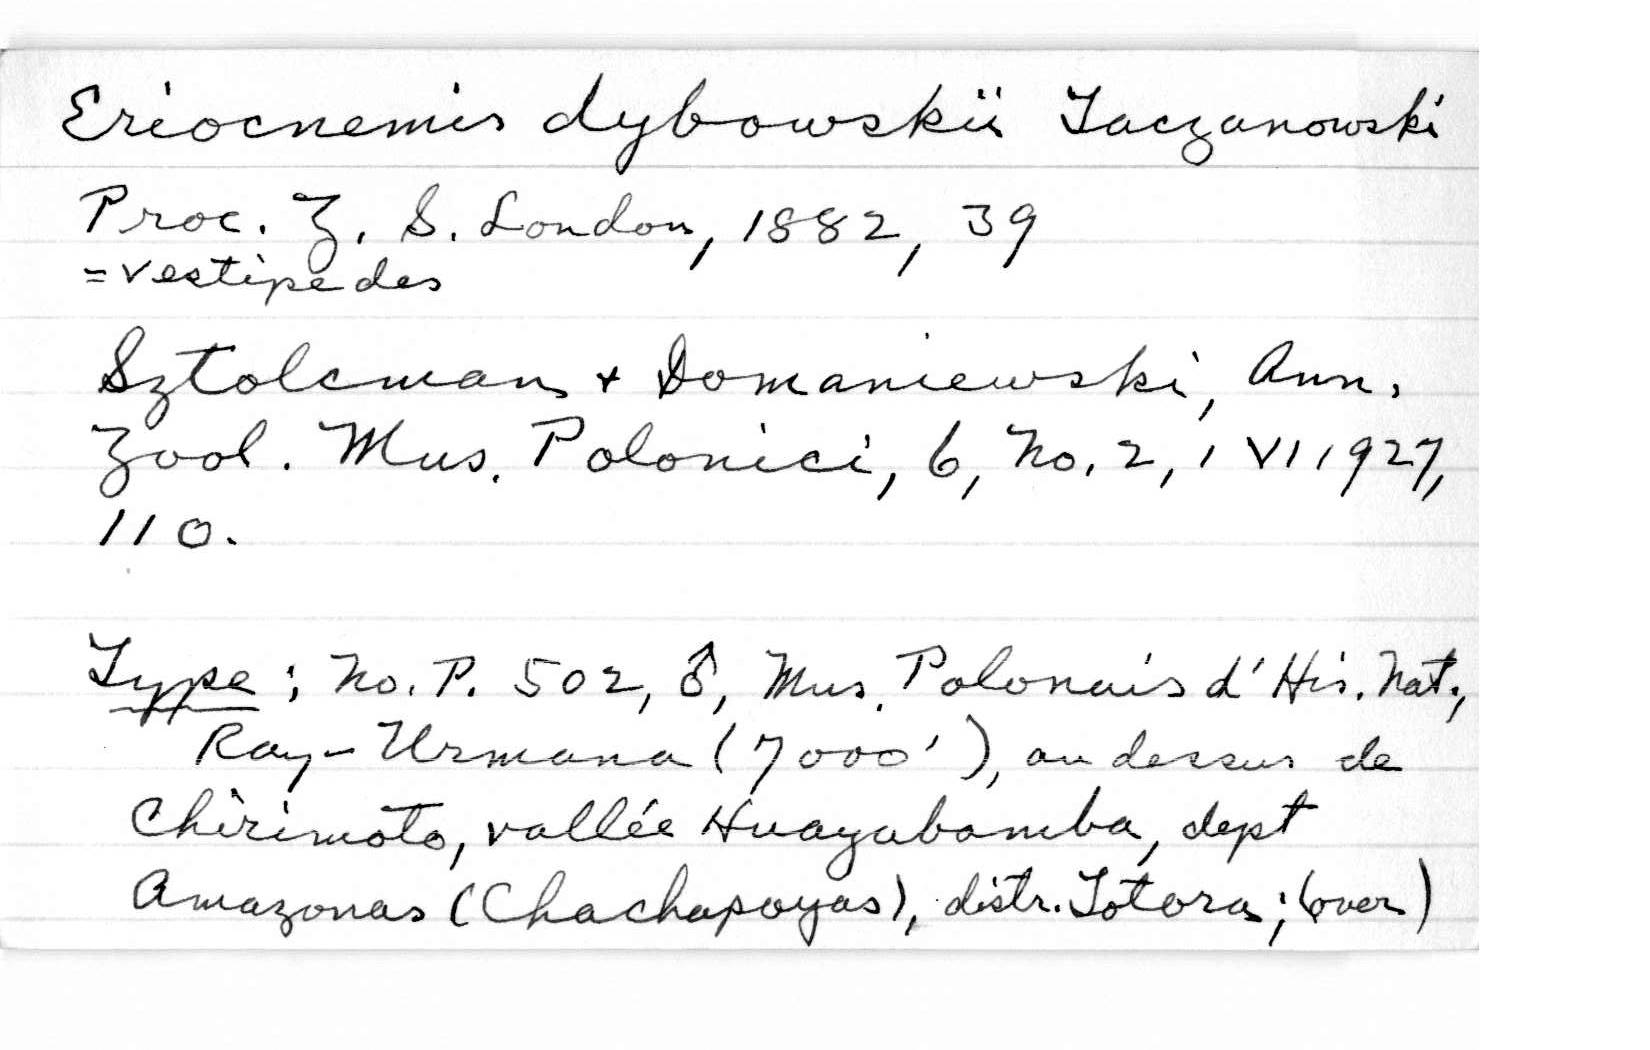 Eriocnemis dybowskii Taczanowski
Proc. Z. S. London, 1882, 39
= vestipedes
Sztolcman + Domaniewski, Ann.
Zool. Mus. Polonici, 6, No. 2, 1 VI 1927,
110.
Type; No. P. 502, ♂, Mus. Polonais d'His. Nat.,
Ray-Urmana (7000'), au dessus de
Chirimoto, vallée Huayabamba, dept
Amazonas (Chachapoyas), distr. Totora; (over)